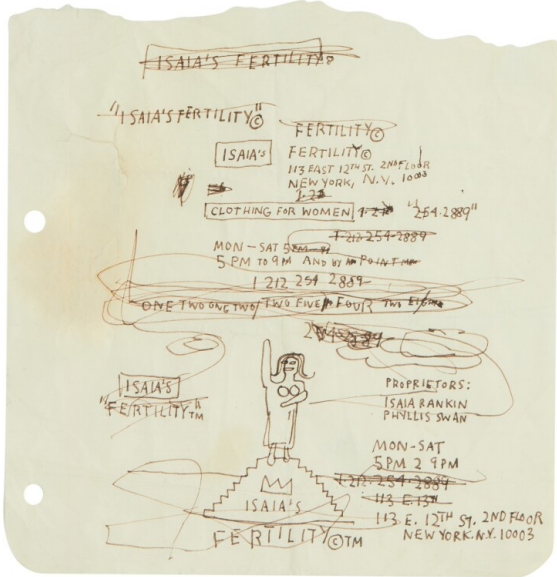 ISAIA'S FERTILITY©
"ISAIA'S FERTILITY"©
FERTILITY©
ISAIA'S FERTILITY©
113 EAST 12TH ST. 2ND FLOOR
NEW YORK, N.Y. 10003
1-21
CLOTHING FOR WOMEN 1-21 "254-2889"
1-212-254-2889
MON-SAT 5PM
5 PM TO 9PM AND BY APOINTM
1 212 254 2889
ONE TWO ONE TWO/ TWO FIVE FOUR TWO EIGHT
ISAIA'S
"FERTILITY"TM
PROPRIETORS:
ISAIA RANKIN
PHYLLIS SWAN
MON-SAT
5PM 2 9PM
1-212-254-2889
113 E. 13TH
113 E. 12TH ST. 2ND FLOOR
NEW YORK.N.Y. 10003
ISAIA'S
FERTILITY©TM